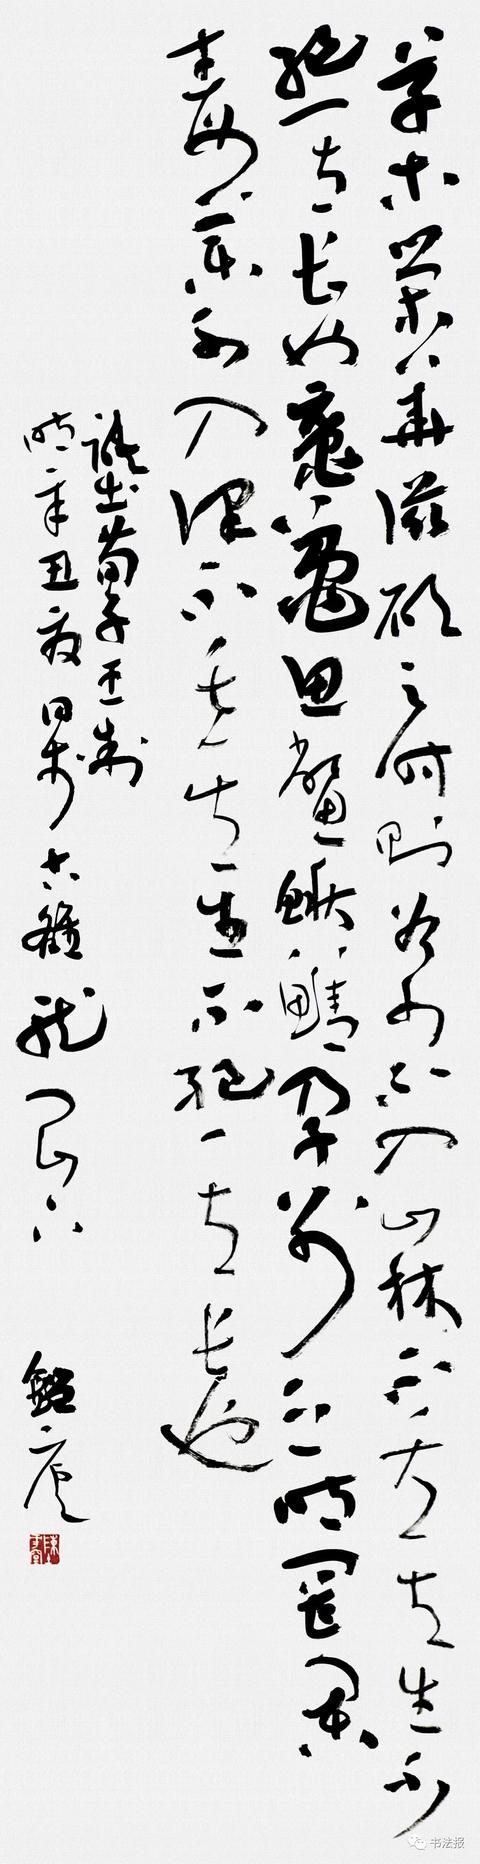 草木榮華滋碩之時則斧斤不入山林不夭其生不
絕其長也黿鼉魚鱉鰍鱣孕別之時罔罟
毒藥不入澤不夭其生不絕其長也
語出荀子王制
時辛丑夏日於古雞龍山下
书法报